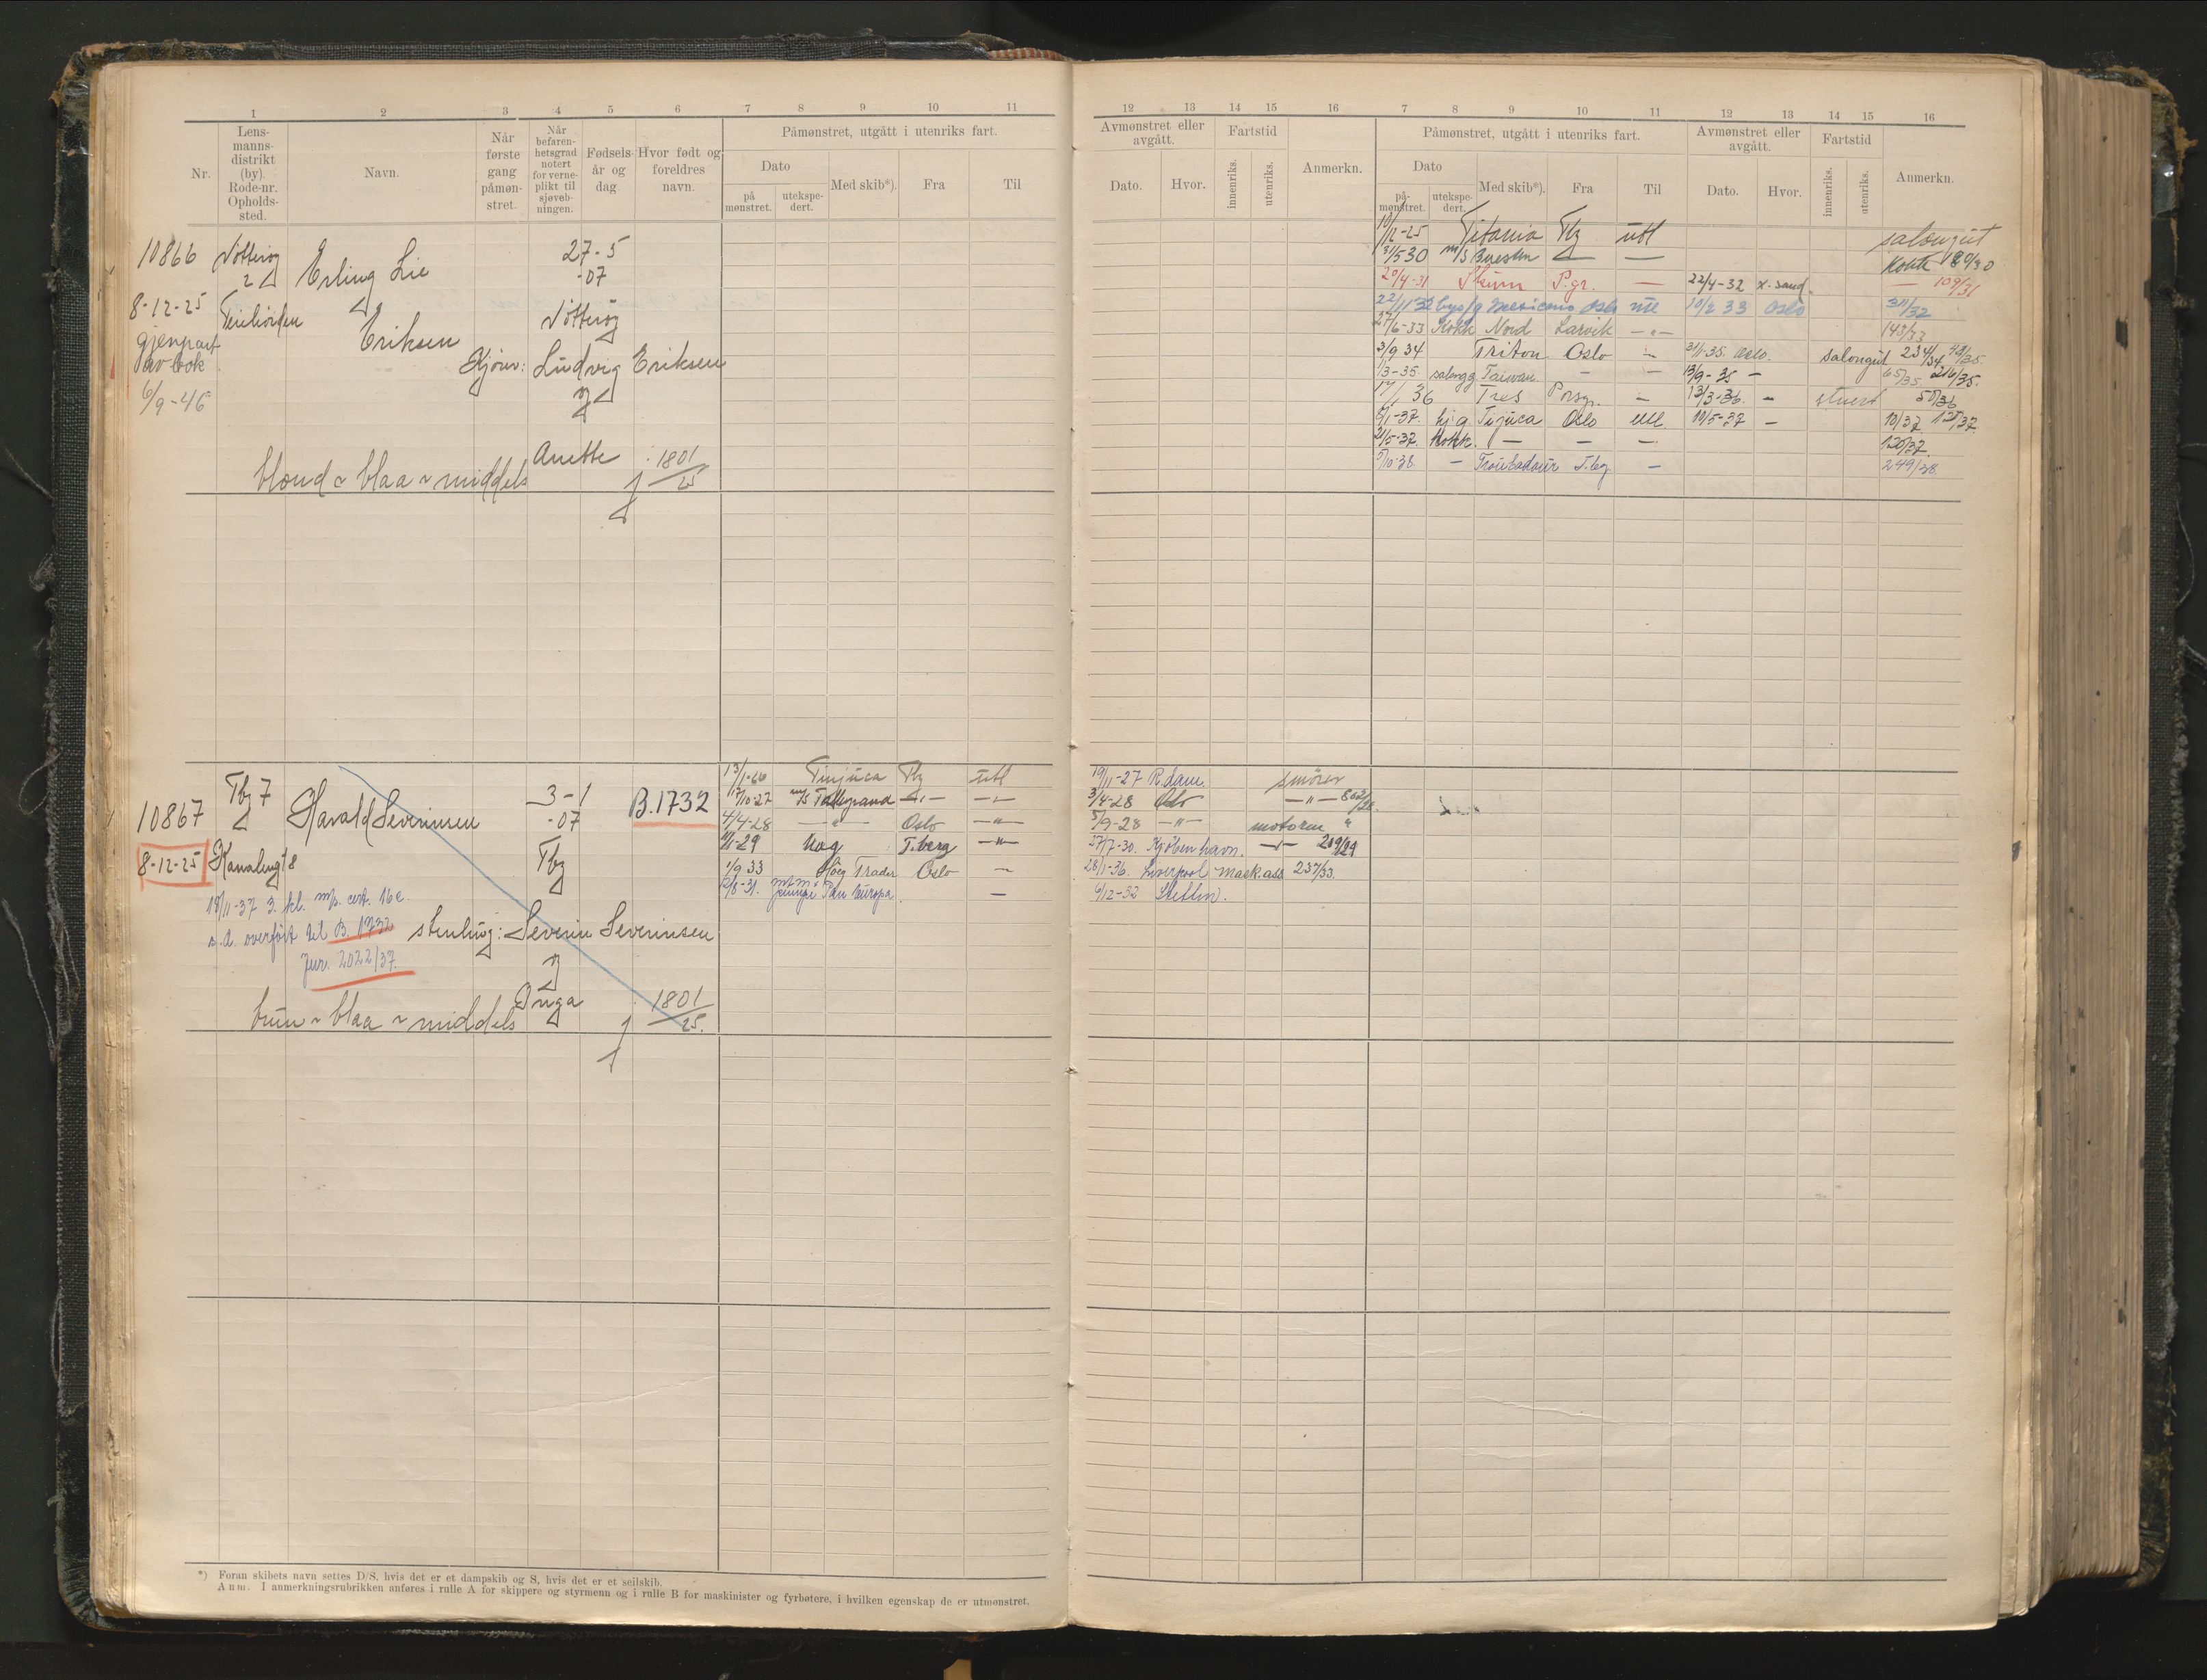 1 2 3 4 5 6 7 8 9 10 11
Nr.
Lens-
manns-
distrikt
(by).
Rode-nr.
Opholds-
sted.
Navn.
Når
første
gang
påmøn-
stret.
Når
befaren-
hetsgrad
notert
for verne-
plikt til
sjøveb-
ningen.
Fødsels-
år og
dag.
Hvor født og
foreldres
navn.
Påmønstret, utgått i utenriks fart.
Dato
på
mønstret.
utekspe-
dert.
Med skib*).
Fra
Til
10866 Nøtterøy Erling Lie 27-5
2 -07
8-12-25 Eriksen Nøtterøy
gjenpart
av bok Kjører: Ludvig Eriksen
6/9-46
Anette 1801/25
blond ~ blaa ~ middels
10867 Tbg 7 Harald Severinsen 3-1 B.1732
-07
8-12-25 Kanalengt 8 Tbg
18/11-37 3. kl. m/s. cert. 16c.
s.d. overført til B. 1732 stenhug: Severin Severinsen
Jur. 2022/37.
Inga 1801/25.
brun ~ blaa ~ middels
13/1-26 Tinjuca Tbg utl
17/10-27 m/s Talleyrand -"- -"-
4/4-28 -"- Oslo -"-
11/1-29 Hag T.berg -"-
1/9 33 Høeg Trader Oslo -
12/8-31. Pan Europa. -
*) Foran skibets navn settes D/S, hvis det er et dampskib og S, hvis det er et seilskib.
Anm. I anmerkningsrubrikken anføres i rulle A for skippere og styrmenn og i rulle B for maskinister og fyrbøtere, i hvilken egenskap de er utmønstret.
12 13 14 15 16 7 8 9 10 11 12 13 14 15 16
Avmønstret eller
avgått.
Dato.
Hvor.
Fartstid
innenriks.
utenriks.
Anmerkn.
Påmønstret, utgått i utenriks fart.
Dato
på-
mønstret.
utekspe-
dert.
Med skib*).
Fra
Til
Avmønstret eller
avgått.
Dato.
Hvor.
Fartstid
innenriks.
utenriks.
Anmerkn.
10/12-25 Titania Tbg utl salongut
31/5 30 m/s - - Kokk 180/30
20/4-31 P.gr. - 22/4-32 x.sand. - 109/31
22/11 32 Mexicano Oslo ute 10/2 33 Oslo 311/32
27/6-33 Kokk Nord Larvik -"- 143/33
3/9 34 Triton Oslo - 31/1-35. Oslo. salongut 234/34 43/35.
1/3-35 salongg Taiwan - - 13/9-35 - 65/35 216/35.
17/1 36 Tres Porsgr. - 13/3-36. - stuert 50/36
8/1-37. Tijuca Oslo utl. 10/5-37 - 10/37. 125/37.
21/5-37. Kokk. - - - 120/37.
5/10-38. - Troubadour T.bg - 249/38
19/11-27 R.dam. smører
3/4-28 Oslo -"- 862/28.
5/9-28 -"- motorm "
27/7-30. Kjøbenhavn. -"- 219/29
28/1-36. Liverpool Mask.ass 237/33.
6/12-32 Stettin.